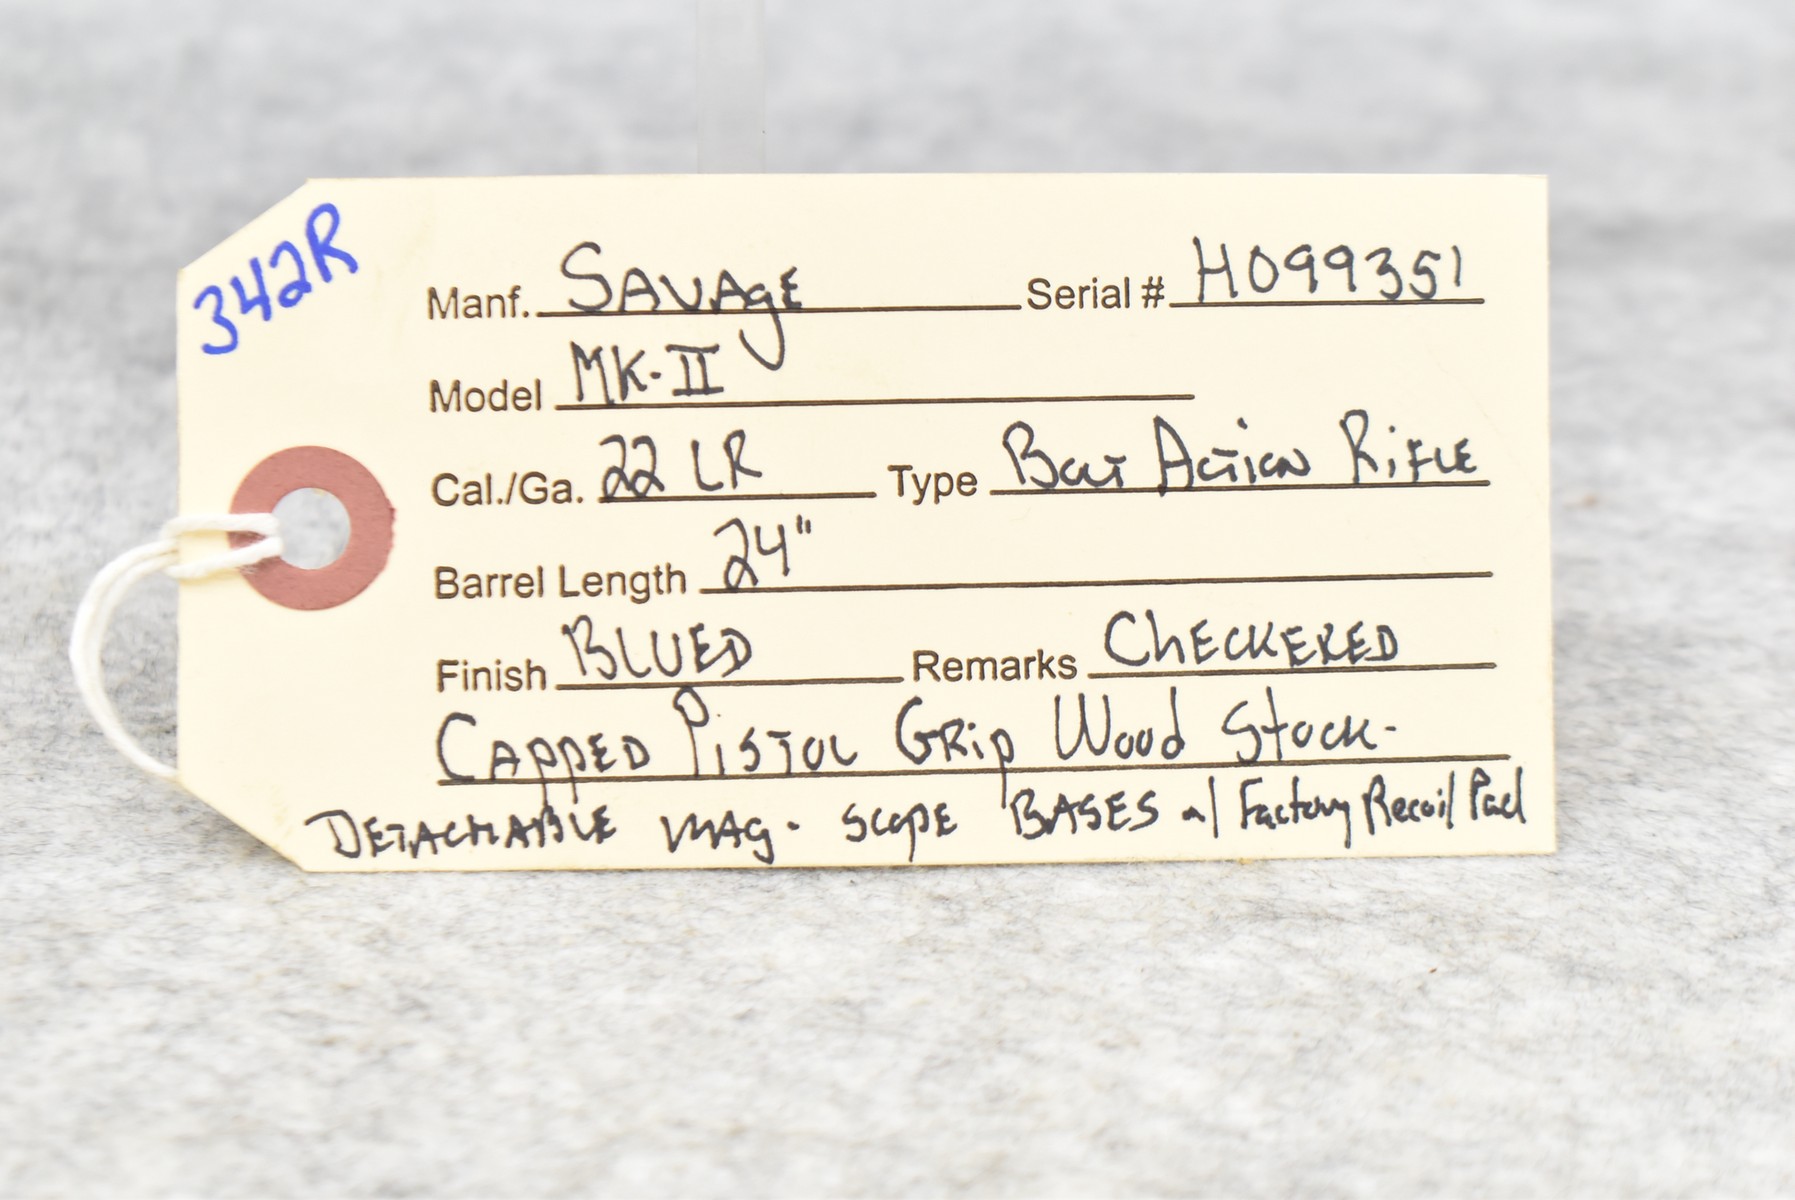 342R
Manf. SAVAgE Serial # H099351
Model MK-II
Cal./Ga. 22 LR Type Bolt Action RiFLE
Barrel Length 24"
Finish BLUED Remarks ChECKERED
CAppED PISTOL GRip Wood Stock-
DETACHABLE MAg. Scope BASES w/ Factory Recoil Pad